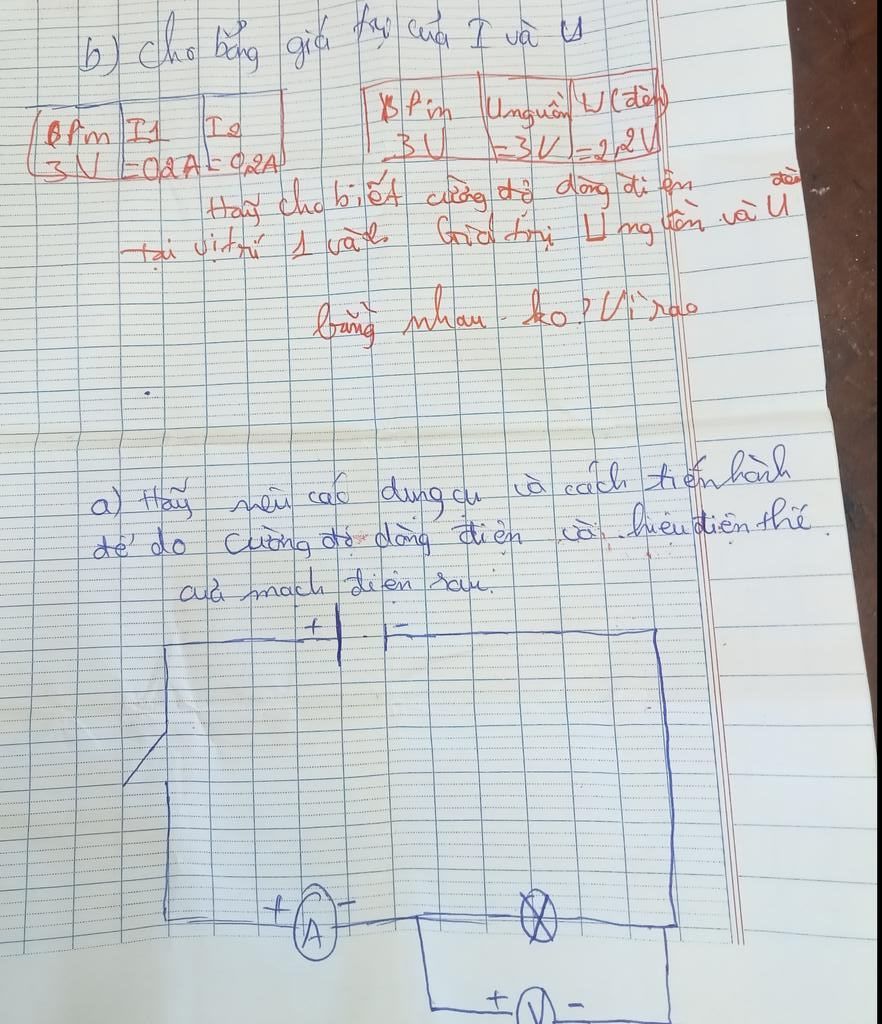 b) Cho bảng giá trị của I và U
Bộ Pin I1 I2
3V =0,2A =0,2A
Bộ Pin Unguồn U(đèn)
3V =3V =2,2V
Hãy cho biết cường độ dòng điện
tại vị trí 1 và 2. Giá trị U nguồn và U đèn
bằng nhau ko? Vì sao
a) Hãy nêu các dụng cụ và cách tiến hành
để đo cường độ dòng điện và hiệu điện thế
của mạch điện sau:
+ -
+ A -
+ V -